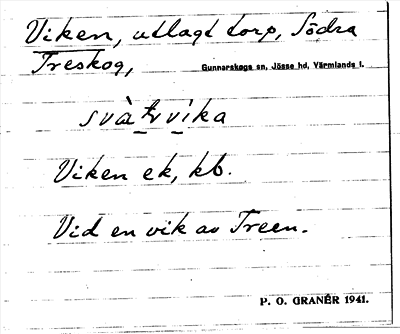 Viken, utlagt torp, Södra
Treskog, Gunnarskogs sn, Jösse hd, Värmlands l.
svàtvíka
Viken ek, kb.
Vid en vik av Treen.
P. O. GRANÉR 1941.